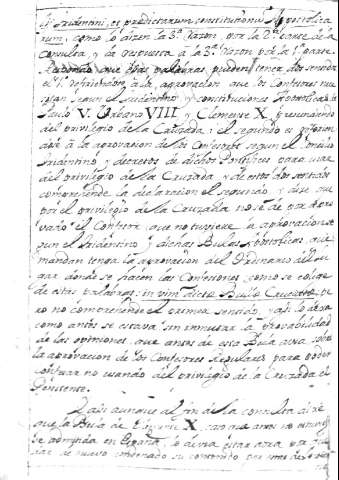 Tridentini, et predictarum constitutionum Apostolica
rum, como lo dizen la 3ª razon por la 2ª parte de la
consulta, y da respuesta a la 3ª razon por la 1ª parte
que estas palabras pueden tener dos sentidos
el 1º a la aprovacion que los Confesores
segun el Tridentino y constituciones Apostolicas de
Paulo V. Urbano VIII y Clemente X
del privilegio de la Cruzada: el segundo es
a la aprovacion de los Confesores segun el Concilio
Tridentino y decretos de dichos Pontifices para usar
del privilegio de la Cruzada, y de estos dos sentidos
comprehende la declaracion el segundo, y dize que
por el privilegio de la Cruzada no se
el Confesor que no tuviere la aprovacion se
gun el Tridentino y dichas Bulas Apostolicas, que
mandan tenga la aprovacion del Ordinario del lu
gar donde se hacen las Confesiones como se colige
de estas palabras: in vim dictæ Bullæ Cruciatæ, pe
ro no comprehende el primer sentido, y asi lo dexa
como antes se estava sin inmutar la provabilidad
de las opiniones que antes de esta Bula avia sobre
la aprovacion de los Confesores Regulares para poder
confesar no usando del privilegio de la Cruzada el
Penitente.
Y asi aunque al fin de la consulta dize
que la Bula de Clemente X
admitida en España, lo devia estar aora por
de nuevo su contenido por